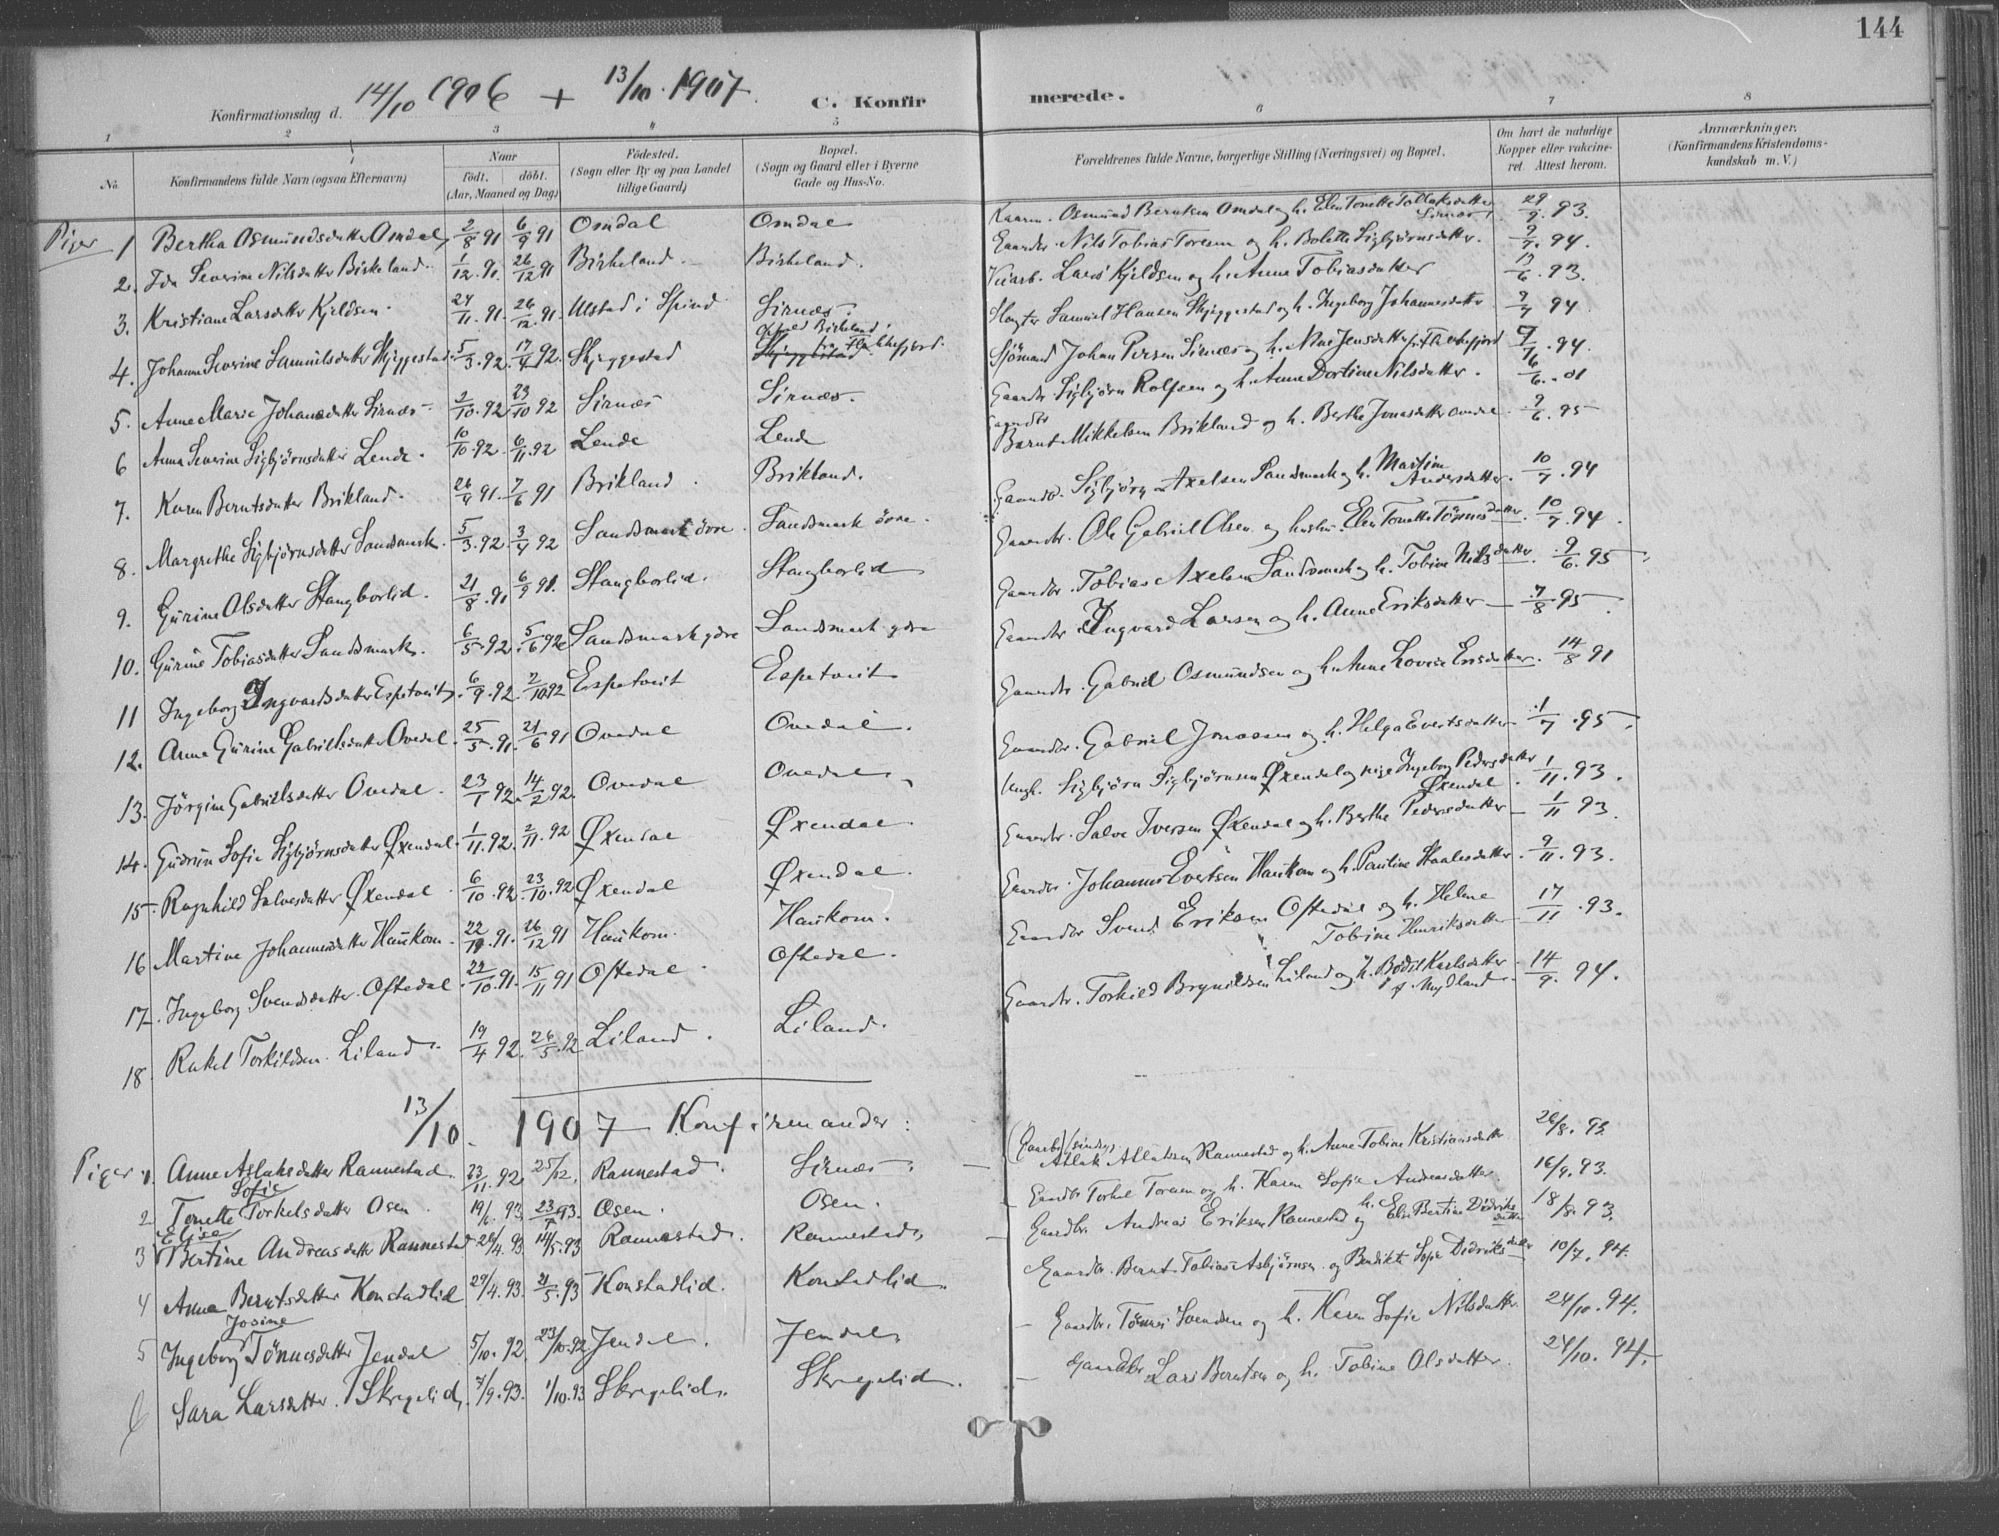 144
Konfirmationsdag d. 14/10 1906 + 13/10. 1907. C. Konfirmerede.
1 2 3 4 5 6 7 8
No. Konfirmandens fulde Navn (ogsaa Efternavn) Naar födt. döbt. (Aar, Maaned og Dag) Födested. (Sogn eller By og paa Landet tillige Gaard) Bopæl. (Sogn og Gaard eller i Byerne Gade og Hus-No. Forældrenes fulde Navne, borgerlige Stilling (Næringsvei) og Bopæl. Om havt de naturlige Kopper eller vaccineret. Attest herom. Anmærkninger. (Konfirmandens Kristendomskundskab m. V.)
Piger 1 Bertha Osmundsdatter Omdal 2/8 91 6/9 91 Omdal Omdal Osmund Berntsen Omdal og h. Elen Tonette Tollaksdatter Sirnæs 29/9. 93.
2. Ida Severine Nilsdatter Birkeland. 1/12. 91. 26/12 91 Birkeland. Birkeland. Gaardbr. Nils Tobias Toresen og h. Bolette Sigbjörnsdatter. 9/7. 94.
3. Kristiane Larsdatter Kjeldsen. 24/11. 91. 26/12. 91. Ulstad i Spind Sirnæs. Lars Kjeldsen og h. Anne Tobiasdatter 13/6. 93.
4. Johanne Severine Samuelsdatter Skjeggestad 5/3. 92. 17/4 92. Skjeggestad Birkeland. Flekkefjord. Samuel Hansen Skjeggestad og h. Ingeborg Johannesdatter 9/7 94
5. Anne Marie Johansdatter Sirnæs 2/10. 92 23/10 92 Sirnæs Sirnæs. Sjömand Johan Persen Sirnæs og h. Jensdatter Flekkefjord 94.
6 Anna Severine Sigbjörnsdatter Lende. 10/10. 92. 6/11. 92 Lende Lende Gaardbr. Sigbjörn Rolfsen og h. Anne Dortine Nilsdatter. 6/6. 01
7. Karen Berntsdatter Brikland. 26/4 91. 7/6 91 Brikland. Brikland. Gaardbr Bernt Mikkelsen Brikland og h. Berthe Jonasdatter 9/6. 95
8. Margrethe Sigbjörnsdatter Sandsmark. 5/3. 92. 3/4 92 Sandsmark övre. Sandsmark övre. Gaardbr. Sigbjörn Axelsen Sandsmark og h. Martine Andersdatter. 10/7. 94
9. Gurine Olsdatter Stangborlid. 21/8. 91 6/9 91. Stangborlid. Stangborlid Gaardbr. Ole Gabriel Olsen og hustru Elen Tonette Tönnesdatter. 10/7. 94.
10. Gurine Tobiasdatter Sandsmark. 6/5. 92. 5/6. 92 Sandsmark ydre Sandsmark ydre Gaardbr. Tobias Axelsen Sandsmark og h. Tobine Nilsdatter. 9/6. 95
11 Ingeborg Ingvardsdatter Espetveit. 6/9. 92. 2/10. 92 Espetveit Espetveit Gaardbr Ingvard Larsen og h. Anne Eriksdatter 7/8. 95
12. Anne Gurine Gabrielsdatter Ovedal. 25/5. 91. 21/6 91 Ovedal Ovedal. Gaardbr. Gabriel Osmundsen og h. Anne Lovise 14/8 91
13. Jörgine Gabrielsdatter Ovedal. 23/1 92. 14/2 92. Ovedal Ovedal. Gaardbr. Gabriel Jonassen og h. Helga Evertsdatter 1/7. 95
14. Gudrun Sofie Sigbjörnsdatter Øxendal. 1/11. 92. 2/11. 92 Øxendal Øxendal. Ungk. Sigbjörn Sigbjörnsen Øxendal og pige Ingeborg Pedersdatter Øxendal. 1/11. 93.
15. Ragnhild Salvesdatter Øxendal. 6/10. 92. 23/10. 92 Øxendal Øxendal. Gaardbr. Salve Iversen Øxendal og h. Berthe Pedersdatter 1/11 93.
16 Martine Johannesdatter Haukom. 91. 26/12 91 Haukom. Haukom. Gaardbr. Johannes Evertsen Haukom og h. Pauline Staalesdatter. 9/11. 93.
17. Ingeborg Svendsdatter Oftedal. 22/10. 91. 15/11 91 Oftedal. Oftedal. Gaardbr Svend Eriksen Oftedal og h. Helene Tobine Henriksdatter 17/11. 93.
18. Rakel Torkildsen Liland. 19/4 92. 26/5. 92 Liland. Liland. Gaardbr. Torkild Brynildsen Liland og h. Bodil Karlsdatter f. Mydland. 14/9. 94.
13/10. 1907 Konfirmander:
Piger 1. Anne Aslaksdatter Rannestad 23/11. 92. 25/12. Rannestad. Sirnæs. Aslak Aslaksen Rannestad og h. Anne Tobine Kristiansdatter 26/8. 93
2 Tonette Sofie Torkelsdatter Osen. 19/6. 93. 23/7 93. Osen. Osen. Gaardbr Torkel Toresen og h. Karen Sofie Andreasdatter. 16/9. 93.
3 Elise Bertine Andreasdatter Rannestad 4. 93. 14/5. 93 Rannestad. Rannestad. Gaardbr. Andreas Eriksen Rannestad og h. Elise Bertine Didriksdatter 18/8. 93.
4 Anna Berntsdatter Konstadlid 29/4. 93. 21/5. 93 Konstadlid. Konstadlid. Gaardbr. Bernt Tobias Asbjörnsen og Bendikte Sofie Didriksdatter 10/7. 94.
5 Ingeborg Josine Tönnesdatter Jendal 5/10. 92. 23/10. 92 Jendal. Jendal. Gaardbr. Tönnes Svendsen og h. Karen Sofie Nilsdatter. 24/10. 94.
6 Sara Larsdatter Skregelid. 7/9. 93. 1/10. 93 Skregelid. Skregelid. Gaardbr Lars Berntsen og h. Tobine Olsdatter. 24/10. 94.